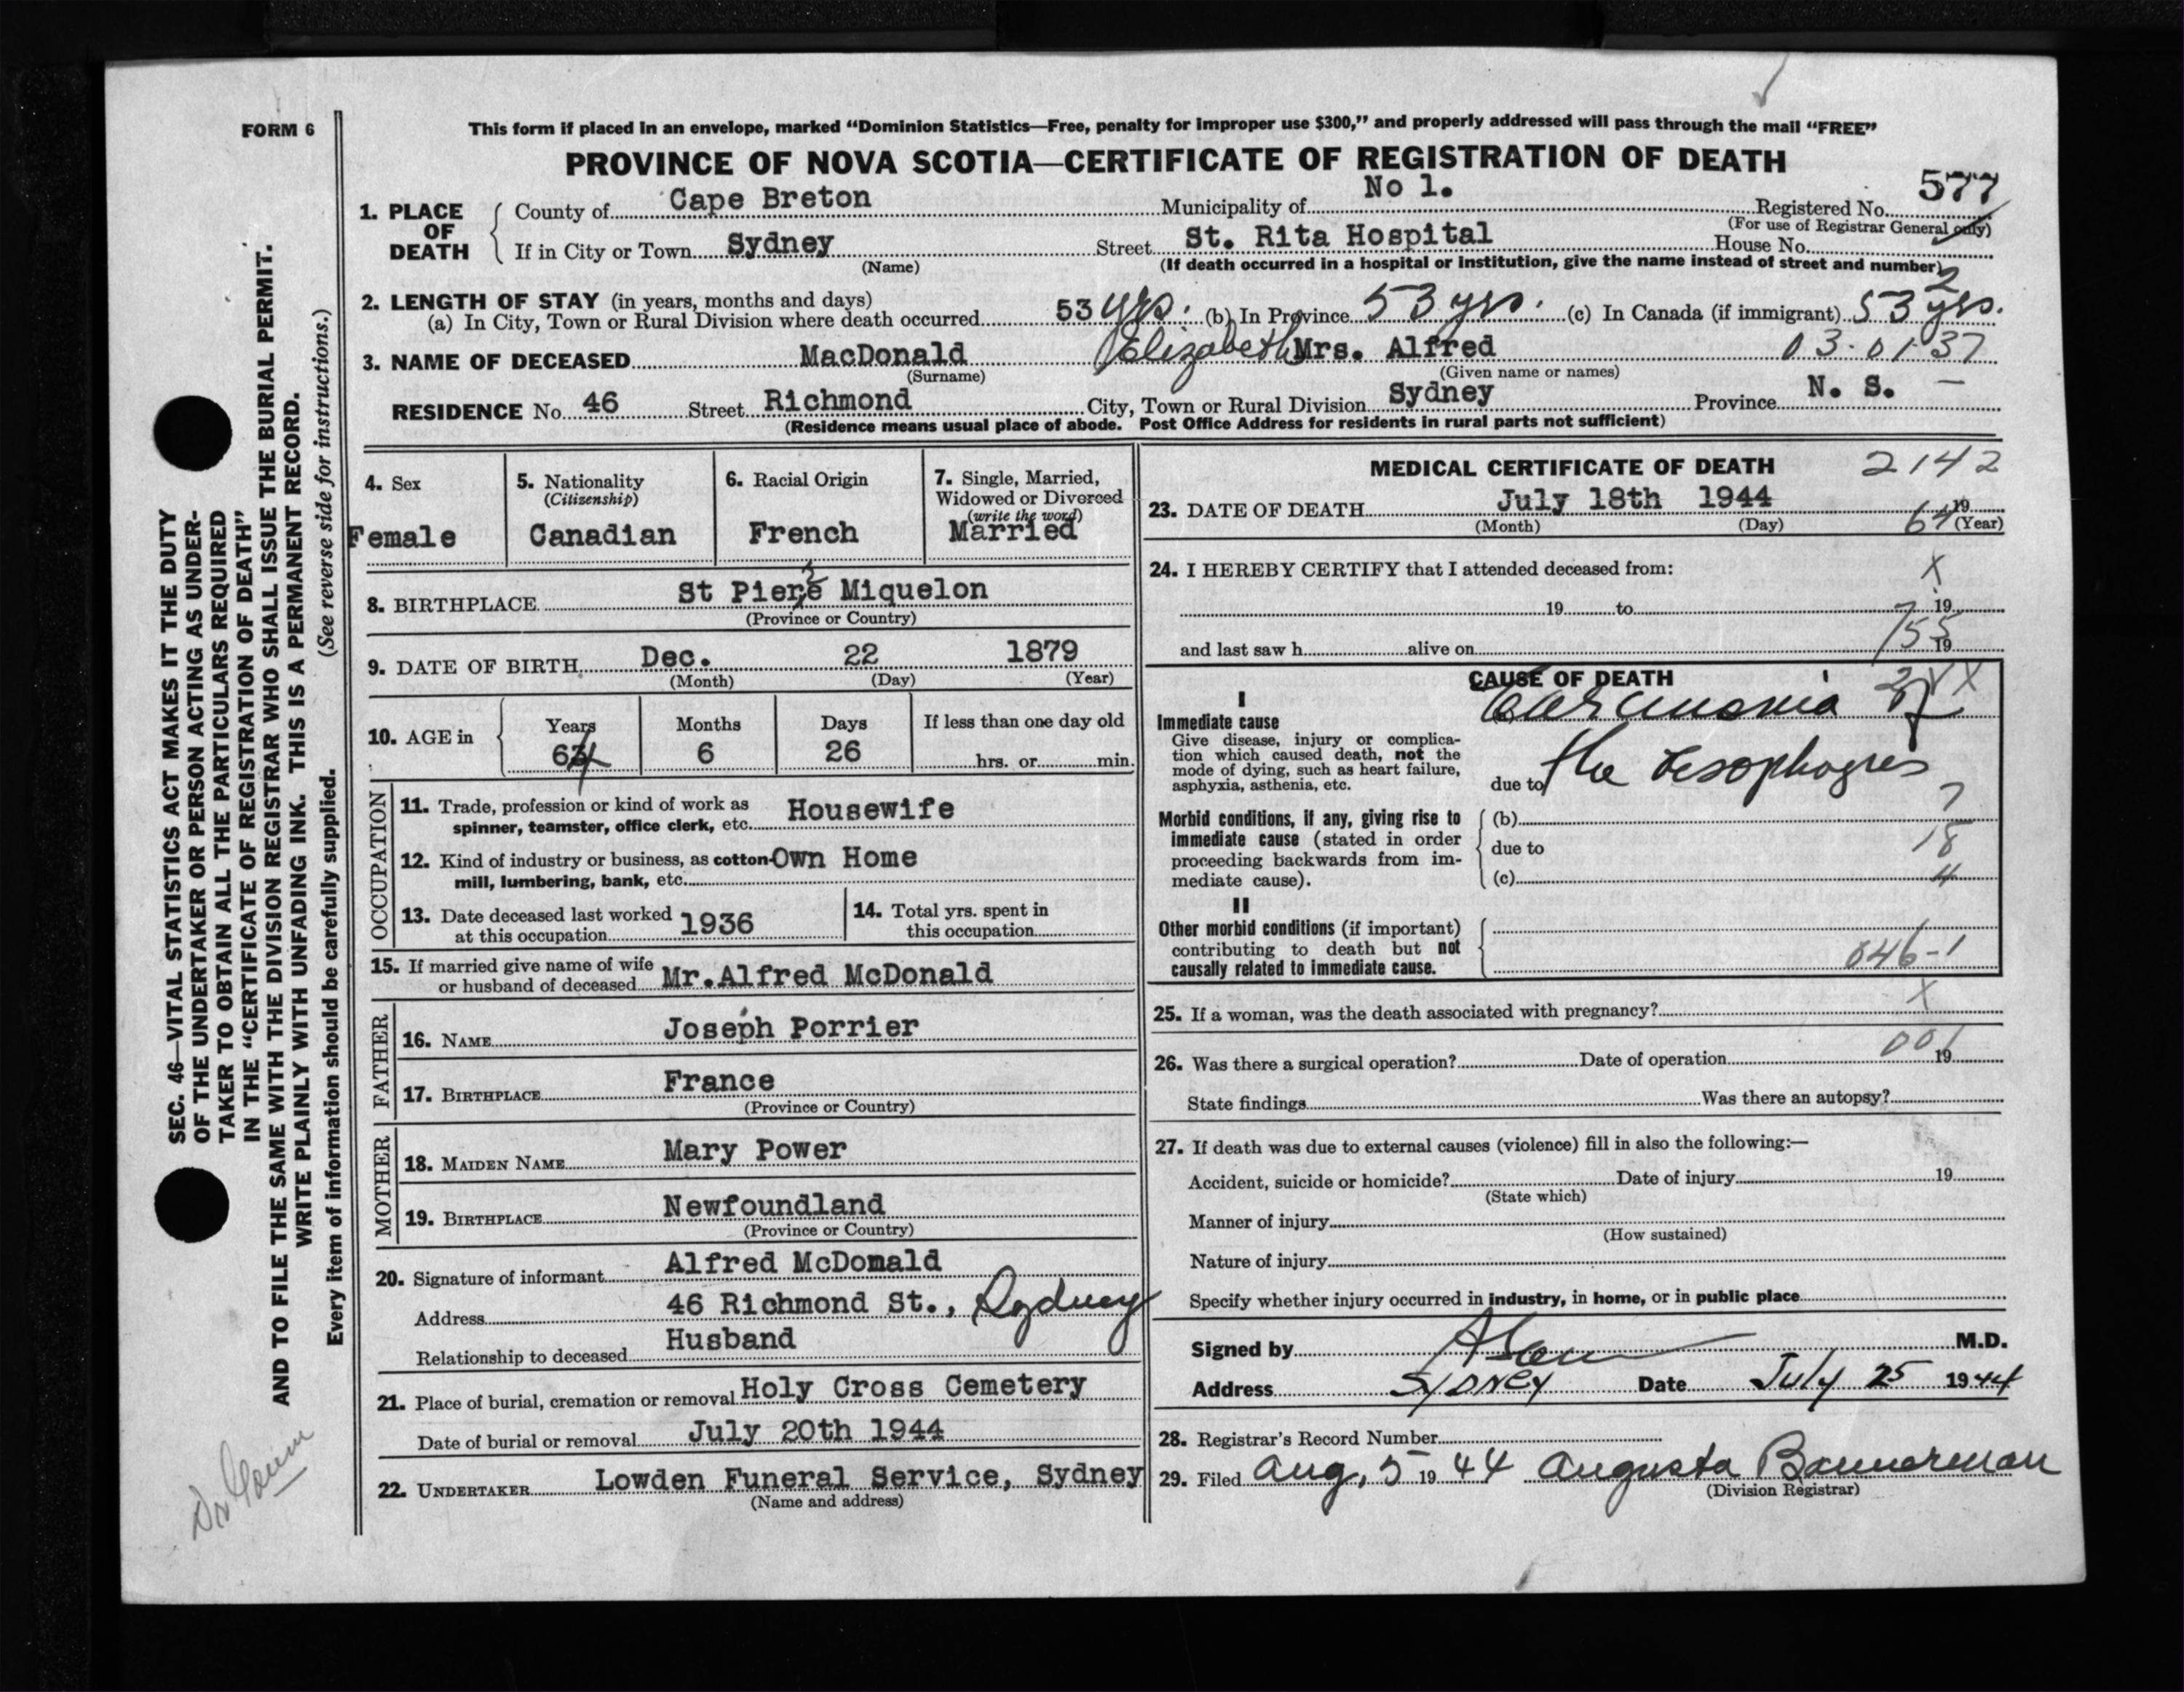 FORM 6
This form if placed in an envelope, marked “Dominion Statistics—Free, penalty for improper use $300,” and properly addressed will pass through the mail “FREE”
PROVINCE OF NOVA SCOTIA—CERTIFICATE OF REGISTRATION OF DEATH
577
1. PLACE OF DEATH
County of Cape Breton Municipality of No 1. Registered No.
(For use of Registrar General only)
If in City or Town Sydney Street St. Rita Hospital House No.
(Name) (If death occurred in a hospital or institution, give the name instead of street and number)
2
2. LENGTH OF STAY (in years, months and days)
(a) In City, Town or Rural Division where death occurred 53 yrs. (b) In Province 53 yrs. (c) In Canada (if immigrant) 53 yrs.
3. NAME OF DECEASED MacDonald Elizabeth Mrs. Alfred 03-01 37
(Surname) (Given name or names)
RESIDENCE No. 46 Street Richmond City, Town or Rural Division Sydney Province N. S. —
(Residence means usual place of abode. Post Office Address for residents in rural parts not sufficient)
4. Sex
Female
5. Nationality
(Citizenship)
Canadian
6. Racial Origin
French
7. Single, Married,
Widowed or Divorced
(write the word)
Married
8. BIRTHPLACE St Piere Miquelon
(Province or Country)
9. DATE OF BIRTH Dec. 22 1879
(Month) (Day) (Year)
10. AGE in
Years Months Days If less than one day old
64 6 26 hrs. or min.
OCCUPATION
11. Trade, profession or kind of work as
spinner, teamster, office clerk, etc. Housewife
12. Kind of industry or business, as cotton-
mill, lumbering, bank, etc. Own Home
13. Date deceased last worked
at this occupation 1936
14. Total yrs. spent in
this occupation
15. If married give name of wife
or husband of deceased Mr.Alfred McDonald
FATHER
16. NAME Joseph Porrier
17. BIRTHPLACE France
(Province or Country)
MOTHER
18. MAIDEN NAME Mary Power
19. BIRTHPLACE Newfoundland
(Province or Country)
20. Signature of informant Alfred McDonald
Address 46 Richmond St., Sydney
Relationship to deceased Husband
21. Place of burial, cremation or removal Holy Cross Cemetery
Date of burial or removal July 20th 1944
22. UNDERTAKER Lowden Funeral Service, Sydney
(Name and address)
MEDICAL CERTIFICATE OF DEATH 2142
23. DATE OF DEATH July 18th 1944 19
(Month) (Day) (Year)
64
24. I HEREBY CERTIFY that I attended deceased from:
X
19 to 19
and last saw h alive on 19
155
CAUSE OF DEATH
I
Immediate cause
Give disease, injury or complica-
tion which caused death, not the
mode of dying, such as heart failure,
asphyxia, asthenia, etc.
Carcinoma of
due to the Esophogus
Morbid conditions, if any, giving rise to
immediate cause (stated in order
proceeding backwards from im-
mediate cause).
(b)
7
due to
18
(c)
4
II
Other morbid conditions (if important)
contributing to death but not
causally related to immediate cause.
046-1
25. If a woman, was the death associated with pregnancy? X
26. Was there a surgical operation? Date of operation 19
001
State findings Was there an autopsy?
27. If death was due to external causes (violence) fill in also the following:—
Accident, suicide or homicide? Date of injury 19
(State which)
Manner of injury
(How sustained)
Nature of injury
Specify whether injury occurred in industry, in home, or in public place
Signed by M.D.
Address Sydney Date July 25 1944
28. Registrar's Record Number
29. Filed Aug. 5 19 44 Augusta Bannerman
(Division Registrar)
SEC. 46—VITAL STATISTICS ACT MAKES IT THE DUTY
OF THE UNDERTAKER OR PERSON ACTING AS UNDER-
TAKER TO OBTAIN ALL THE PARTICULARS REQUIRED
IN THE “CERTIFICATE OF REGISTRATION OF DEATH”
AND TO FILE THE SAME WITH THE DIVISION REGISTRAR WHO SHALL ISSUE THE BURIAL PERMIT.
WRITE PLAINLY WITH UNFADING INK. THIS IS A PERMANENT RECORD.
Every item of information should be carefully supplied. (See reverse side for instructions.)